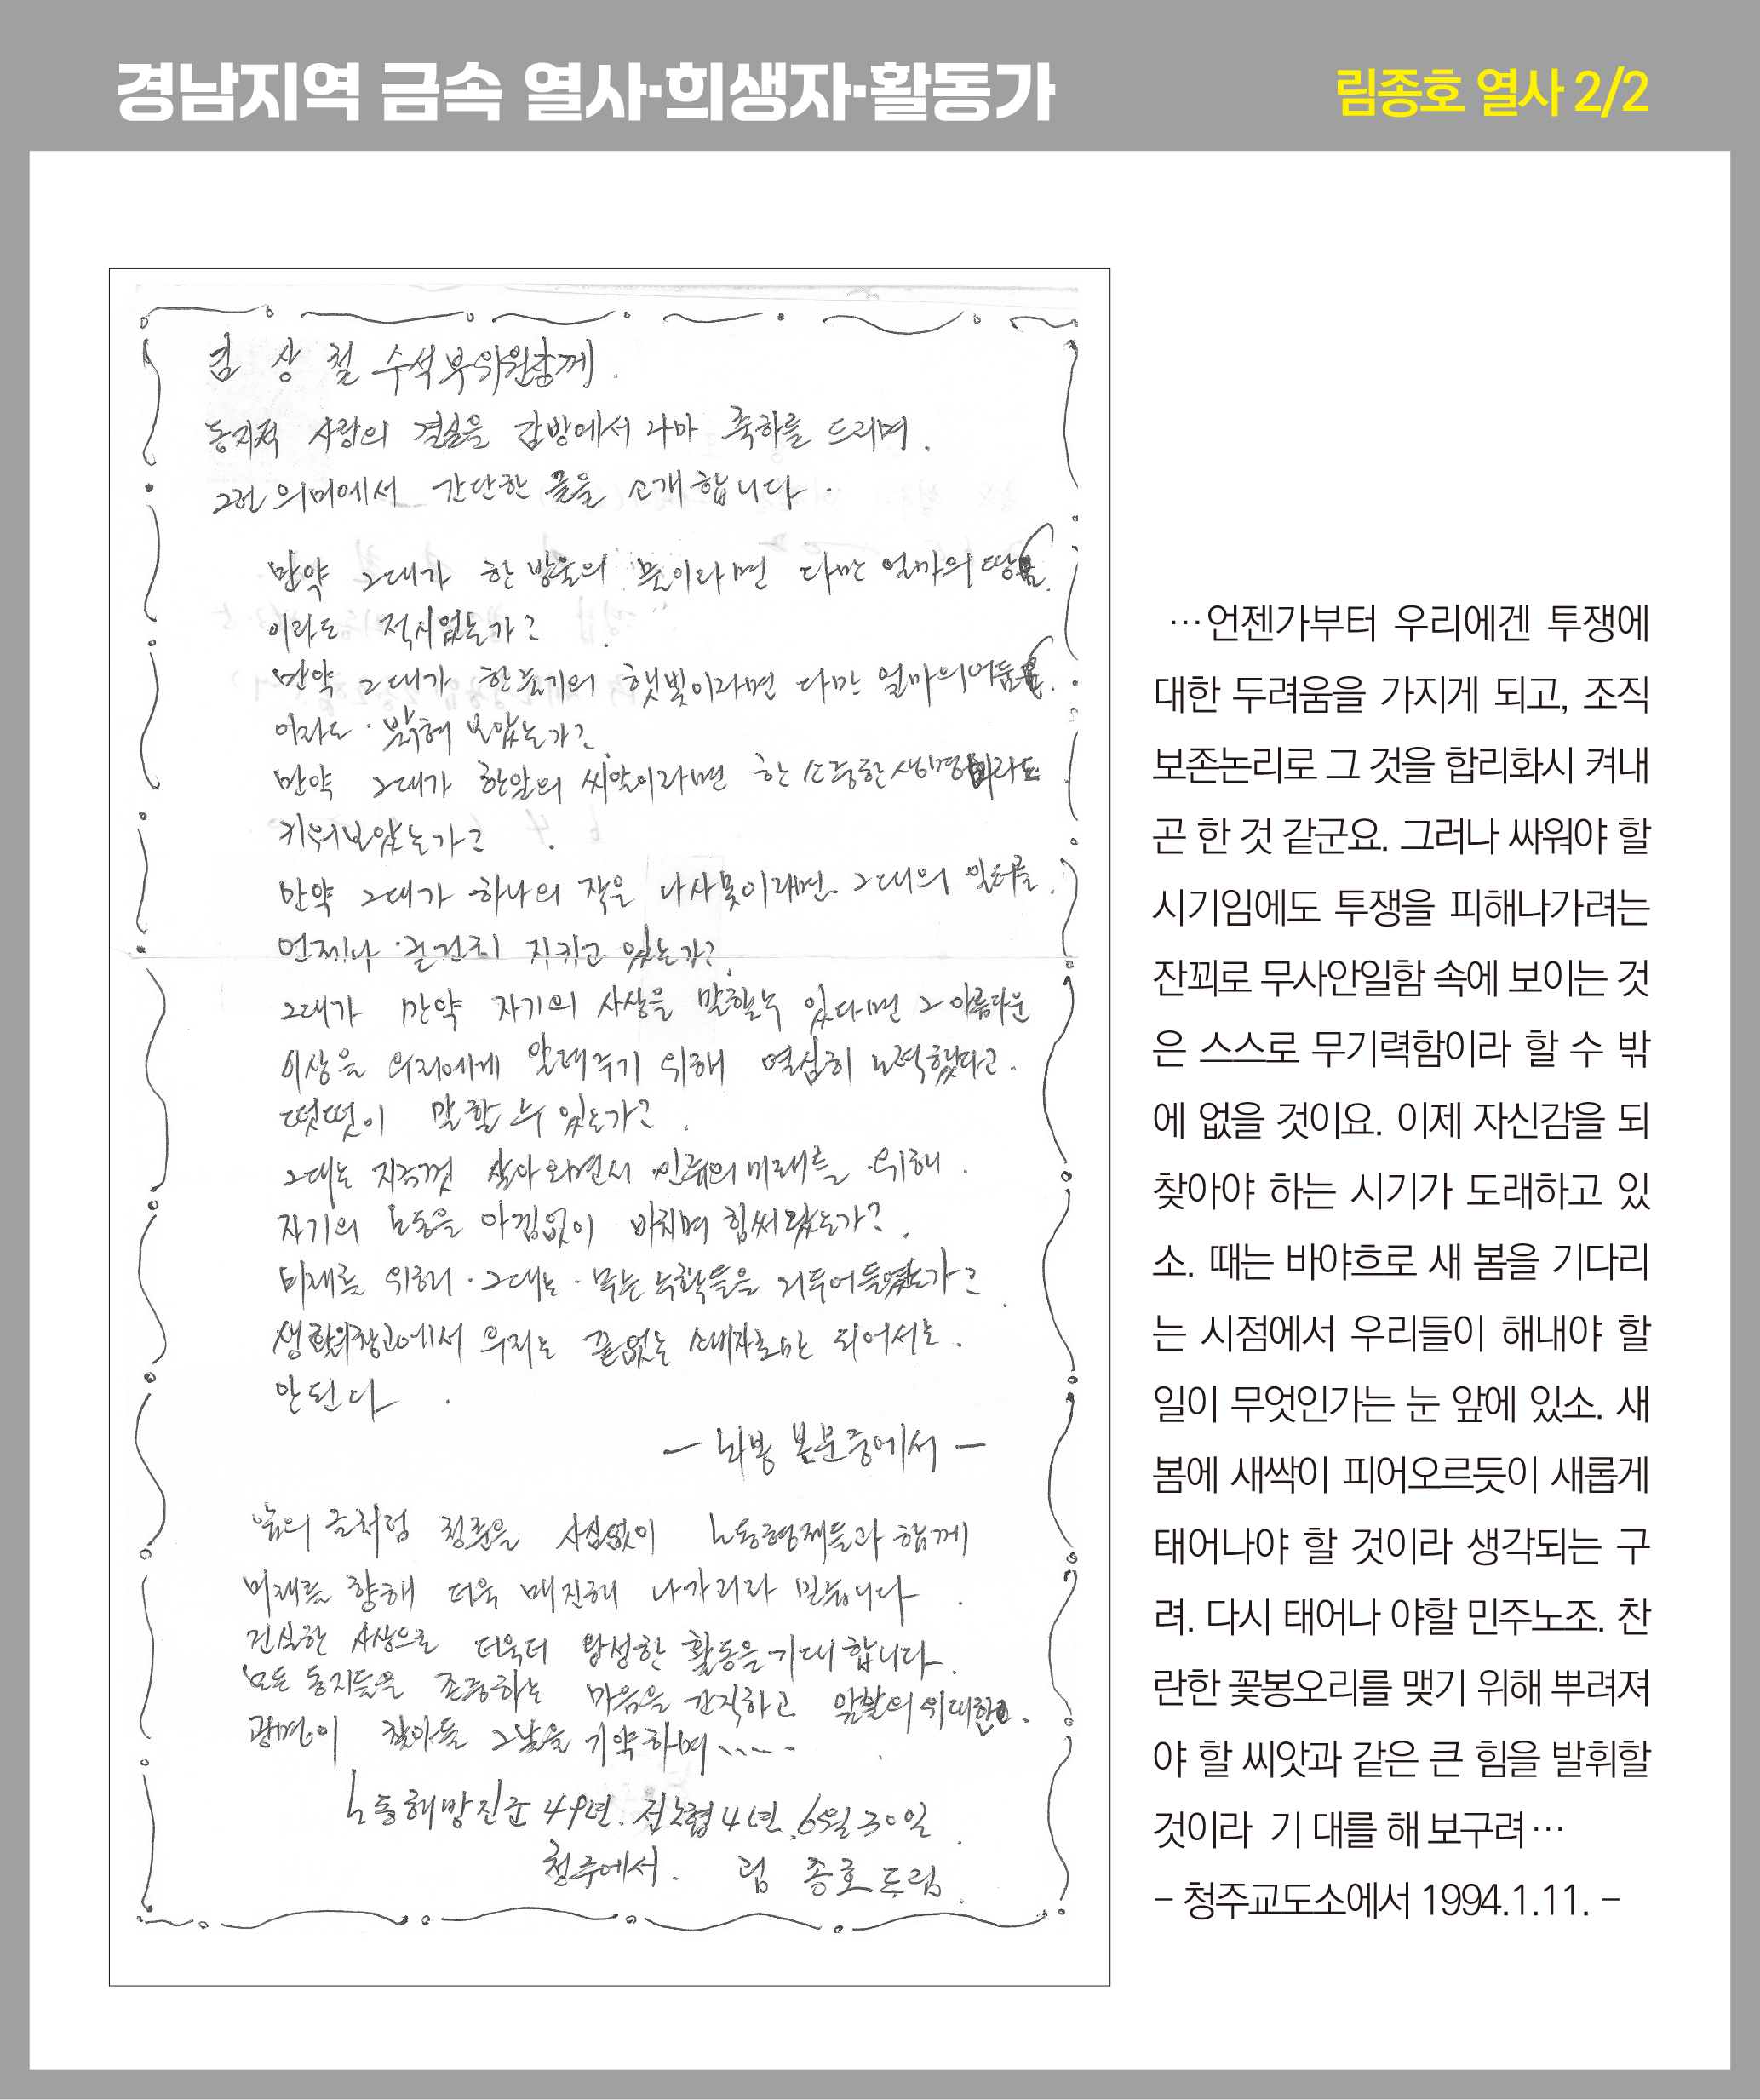 경남지역 금속 열사·희생자·활동가
림종호 열사 2/2
김 상 철 수석부위원장께.
동지적 사랑의 결실을 감방에서 나마 축하를 드리며.
그런 의미에서 간단한 글을 소개합니다.
만약 그대가 한 방울의 물이라면 다만 얼마의 땅
이라도 적시었는가?
만약 그대가 한줄기의 햇빛이라면 다만 얼마의 어둠
이라도 밝혀 보았는가?
만약 그대가 한알의 씨알이라면 한 소중한 생명이라도
키워보았는가?
만약 그대가 하나의 작은 나사못이라면 그대의 일터를
언제나 굳건히 지키고 있는가?
그대가 만약 자기의 사상을 말할수 있다면 그 아름다운
이상을 우리에게 알려주기 위해 열심히 노력했다고
떳떳이 말할 수 있는가?
그대는 지금껏 살아 오면서 인류의 미래를 위해
자기의 노동을 아낌없이 바치며 힘써 왔는가?
미래를 위해 그대는 수확들을 거두어들였는가?
생활의 창고에서 우리는 끝없는 소비자로만 되어서는
안된다.
— 뇌봉 본문중에서 —
앞의 글처럼 청춘을 사심없이 노동형제들과 함께
미래를 향해 더욱 매진해 나가리라 믿습니다.
진실한 사상으로 더욱더 왕성한 활동을 기대합니다.
모든 동지들을 존중하는 마음을 간직하고 앞날의 위대한
광명이 찾아들 그날을 기약하며.....
노동해방진군 49년. 전노협 4년. 6월 30일
청주에서. 림 종호 드림.
…언젠가부터 우리에겐 투쟁에
대한 두려움을 가지게 되고, 조직
보존논리로 그 것을 합리화시 켜내
곤 한 것 같군요. 그러나 싸워야 할
시기임에도 투쟁을 피해나가려는
잔꾀로 무사안일함 속에 보이는 것
은 스스로 무기력함이라 할 수 밖
에 없을 것이요. 이제 자신감을 되
찾아야 하는 시기가 도래하고 있
소. 때는 바야흐로 새 봄을 기다리
는 시점에서 우리들이 해내야 할
일이 무엇인가는 눈 앞에 있소. 새
봄에 새싹이 피어오르듯이 새롭게
태어나야 할 것이라 생각되는 구
려. 다시 태어나 야할 민주노조. 찬
란한 꽃봉오리를 맺기 위해 뿌려져
야 할 씨앗과 같은 큰 힘을 발휘할
것이라 기 대를 해 보구려…
– 청주교도소에서 1994.1.11. –